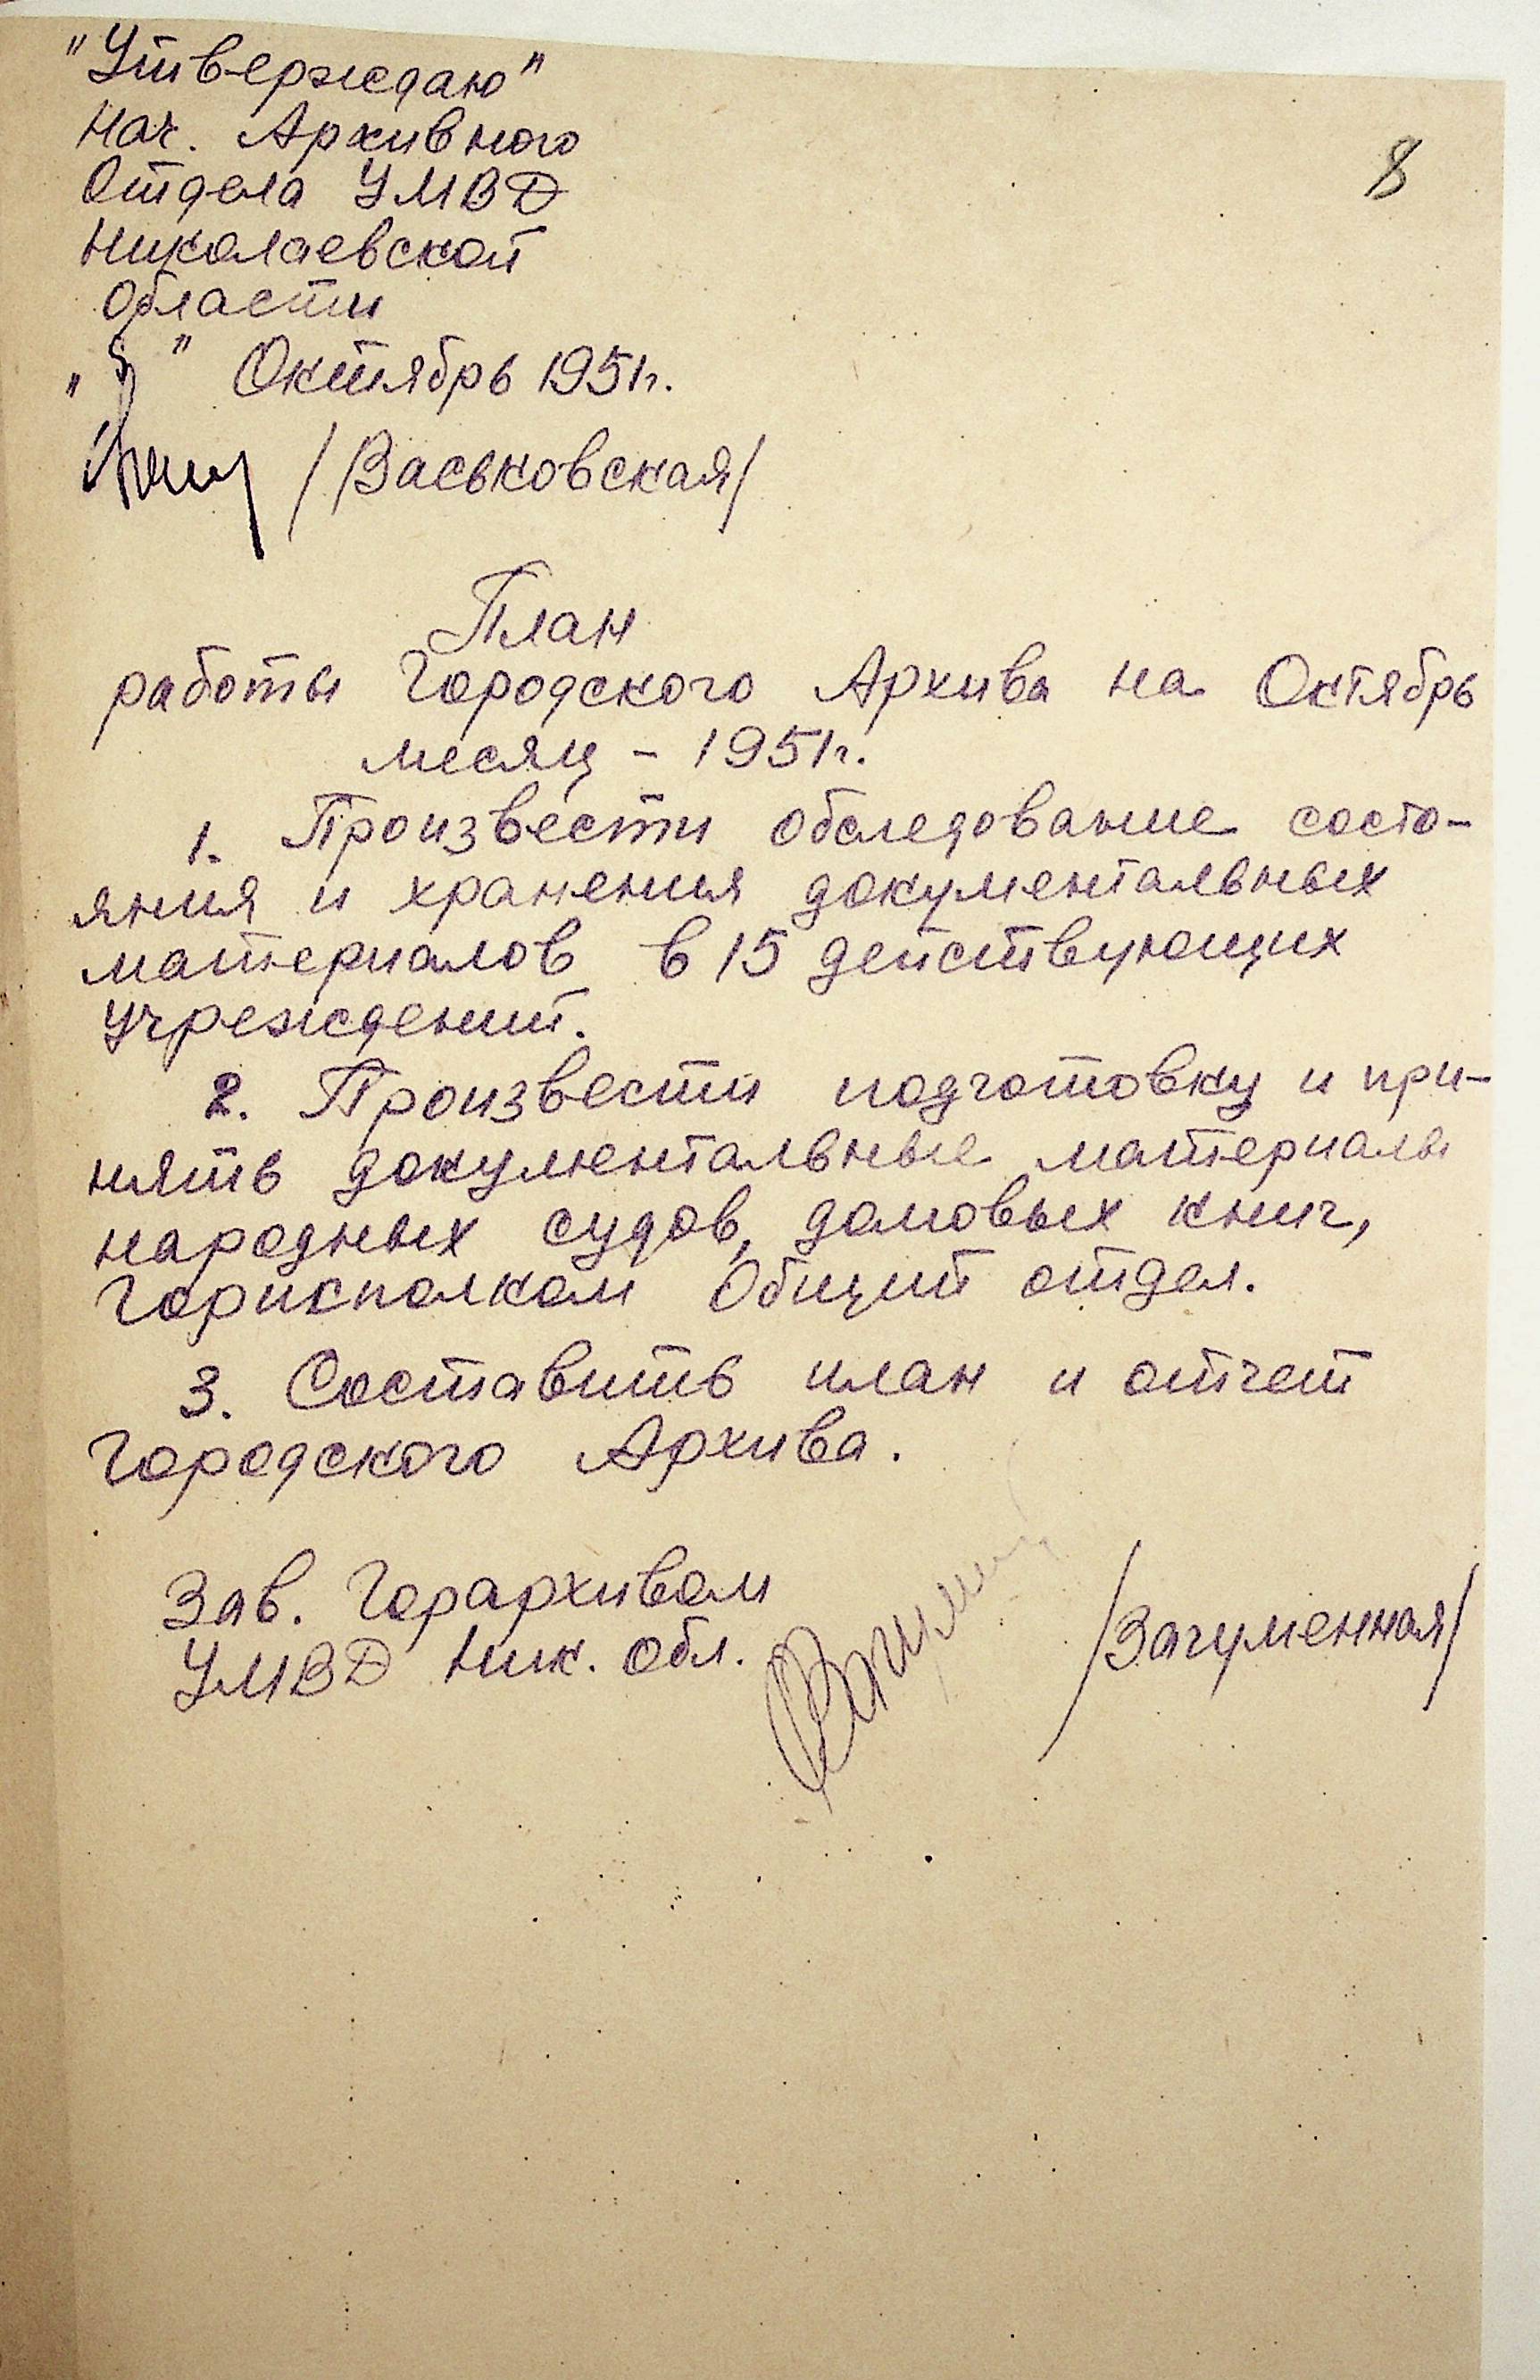 "Утверждаю"
Нач. Архивного
Отдела УМВД
Николаевской
области
8
" " Октябрь 1951г.
/Васьковская/
План
работы Городского Архива на Октябрь
месяц - 1951г.
1. Произвести обследование состо-
яния и хранения документальных
материалов в 15 действующих
учреждений.
2. Произвести подготовку и при-
нять документальные материалы
народных судов, домовых книг,
Горисполком Общий отдел.
3. Составить план и отчет
Городского Архива.
Зав. Горархивом
УМВД Ник. обл.
/Загуменная/